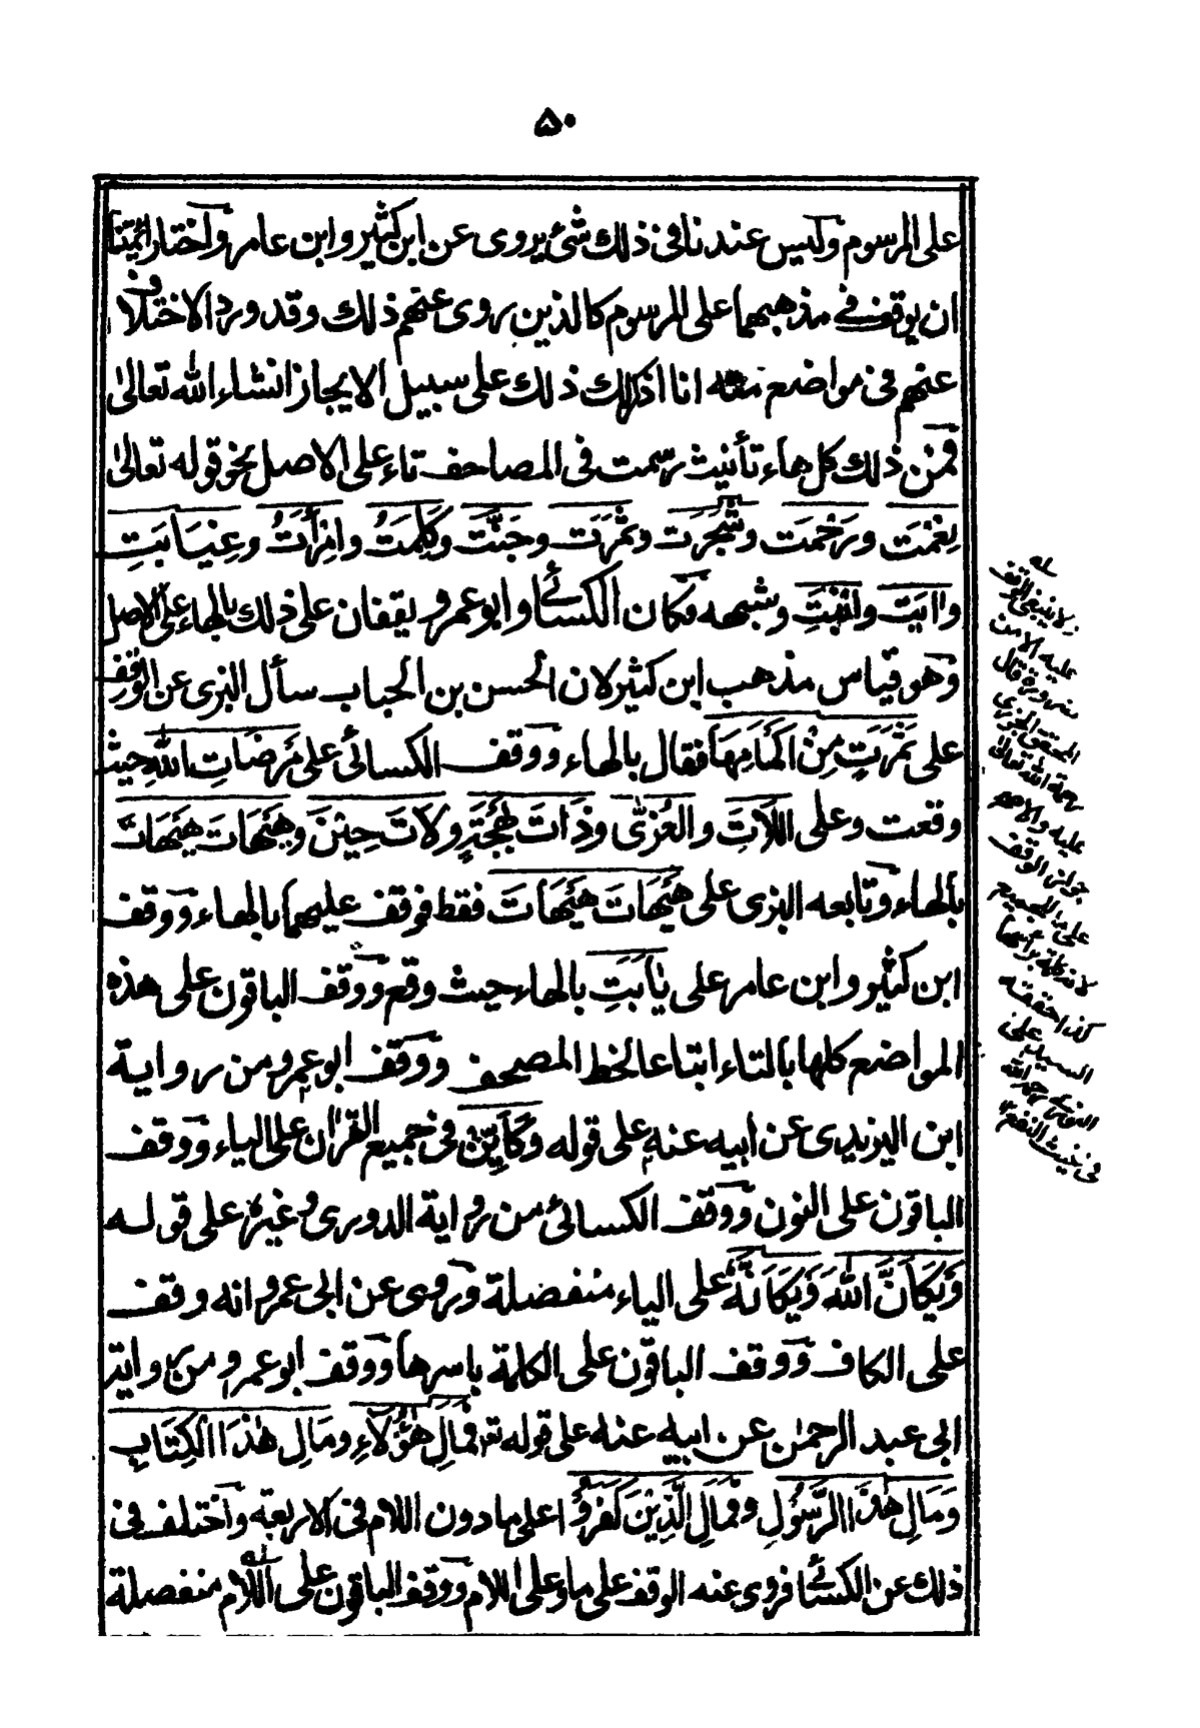 ۵۰
على المرسوم وليس عندنا فى ذلك شئ يروى عن ابن كثير وابن عامر واختار ائمتنا
ان يوقف فى مذهبهما على المرسوم كالذين روى عنهم ذلك وقد ورد الاختلاف
عنهم فى مواضع منه انا اذكر لك ذلك على سبيل الايجاز انشاء الله تعالى
فمن ذلك كل هاء تأنيث رسمت فى المصاحف تاء على الاصل نحو قوله تعالى
نِعْمَت ورَحْمَت وشَجَرَت وثَمَرَت وجَنَّت وكَلِمَتُ وامْرَأَتُ وغِيَابَتِ
واايَت وابْنَتِ وشبهه فكان الكسائى وابو عمرو يقفان على ذلك بالهاء على الاصل
وهو قياس مذهب ابن كثير لان الحسن بن الحباب سأل البزى عن الوقف
على ثَمَرَتٍ مِنْ اَكْمَامِهَا فقال بالهاء ووقف الكسائى على مَرضَاتِ اللهِ حيث
وقعت وعلى اللَّاتَ والعُزّٰى وذَاتَ بَهْجَةٍ ولَاتَ حِيْنَ وهَيْهَاتَ هَيْهَاتَ
بالهاء وتابعه البزى على هَيْهَاتَ هَيْهَاتَ فقط فوقف عليهما بالهاء ووقف
ابن كثير وابن عامر على يٰأَبَتِ بالهاء حيث وقع ووقف الباقون على هذه
المواضع كلها بالتاء اتباعا لخط المصحف ووقف ابو عمرو من رواية
ابن اليزيدى عن ابيه عنه على قوله وكَأَيِّنْ فى جميع القرآن على الياء ووقف
الباقون على النون ووقف الكسائى من رواية الدورى وغيره على قوله
وَيْكَاَنَّ اللهَ وَيْكَاَنَّهُ على الياء منفصلة وروى عن ابى عمرو انه وقف
على الكاف ووقف الباقون على الكلمة باسرها ووقف ابو عمرو من رواية
ابى عبد الرحمٰن عن ابيه عنه على قوله فمَالِ هٰؤُلَاءِ ومَالِ هٰذَا الْكِتَابِ
وَمَالِ هٰذَا الرَّسُولِ وفمَالِ الَّذِيْنَ كَفَرُوْا على ما دون اللام فى الاربعة واختلف فى
ذلك عن الكسائى فروى عنه الوقف على ما وعلى اللام ووقف الباقون على اللام منفصلة
ولا ينبغى الوقف
عليه الا من
ضرورة قال
المحقق الجزرى
رحمة الله تعالى
عليه والاصح
جواز الوقف
على ما للجميع
لانه كلمة برأسها
كذا حققه
السيد على
النورى رحمه الله
فى غيث النفع